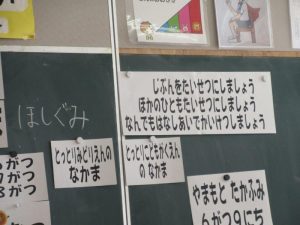 ほしぐみ
6がつ
7がつ
8がつ
とっとりみどりえんの
なかま
じぶんをたいせつにしましょう
ほかのひともたいせつにしましょう
なんでもはなしあいでかいけつしましょう
とっとりこどもがくえん
の なかま
やまもと たかふみ
6がつ9にち